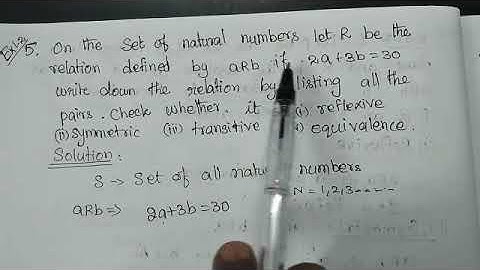 Ex 1.2
5. On the set of natural numbers let R be the
relation defined by aRb if 2a+3b=30.
write down the relation by listing all the
pairs. Check whether it is (i) reflexive
(ii) symmetric (iii) transitive equivalence.
Solution:
S → Set of all natural numbers
N = 1,2,3-----
aRb ⇒ 2a+3b=30